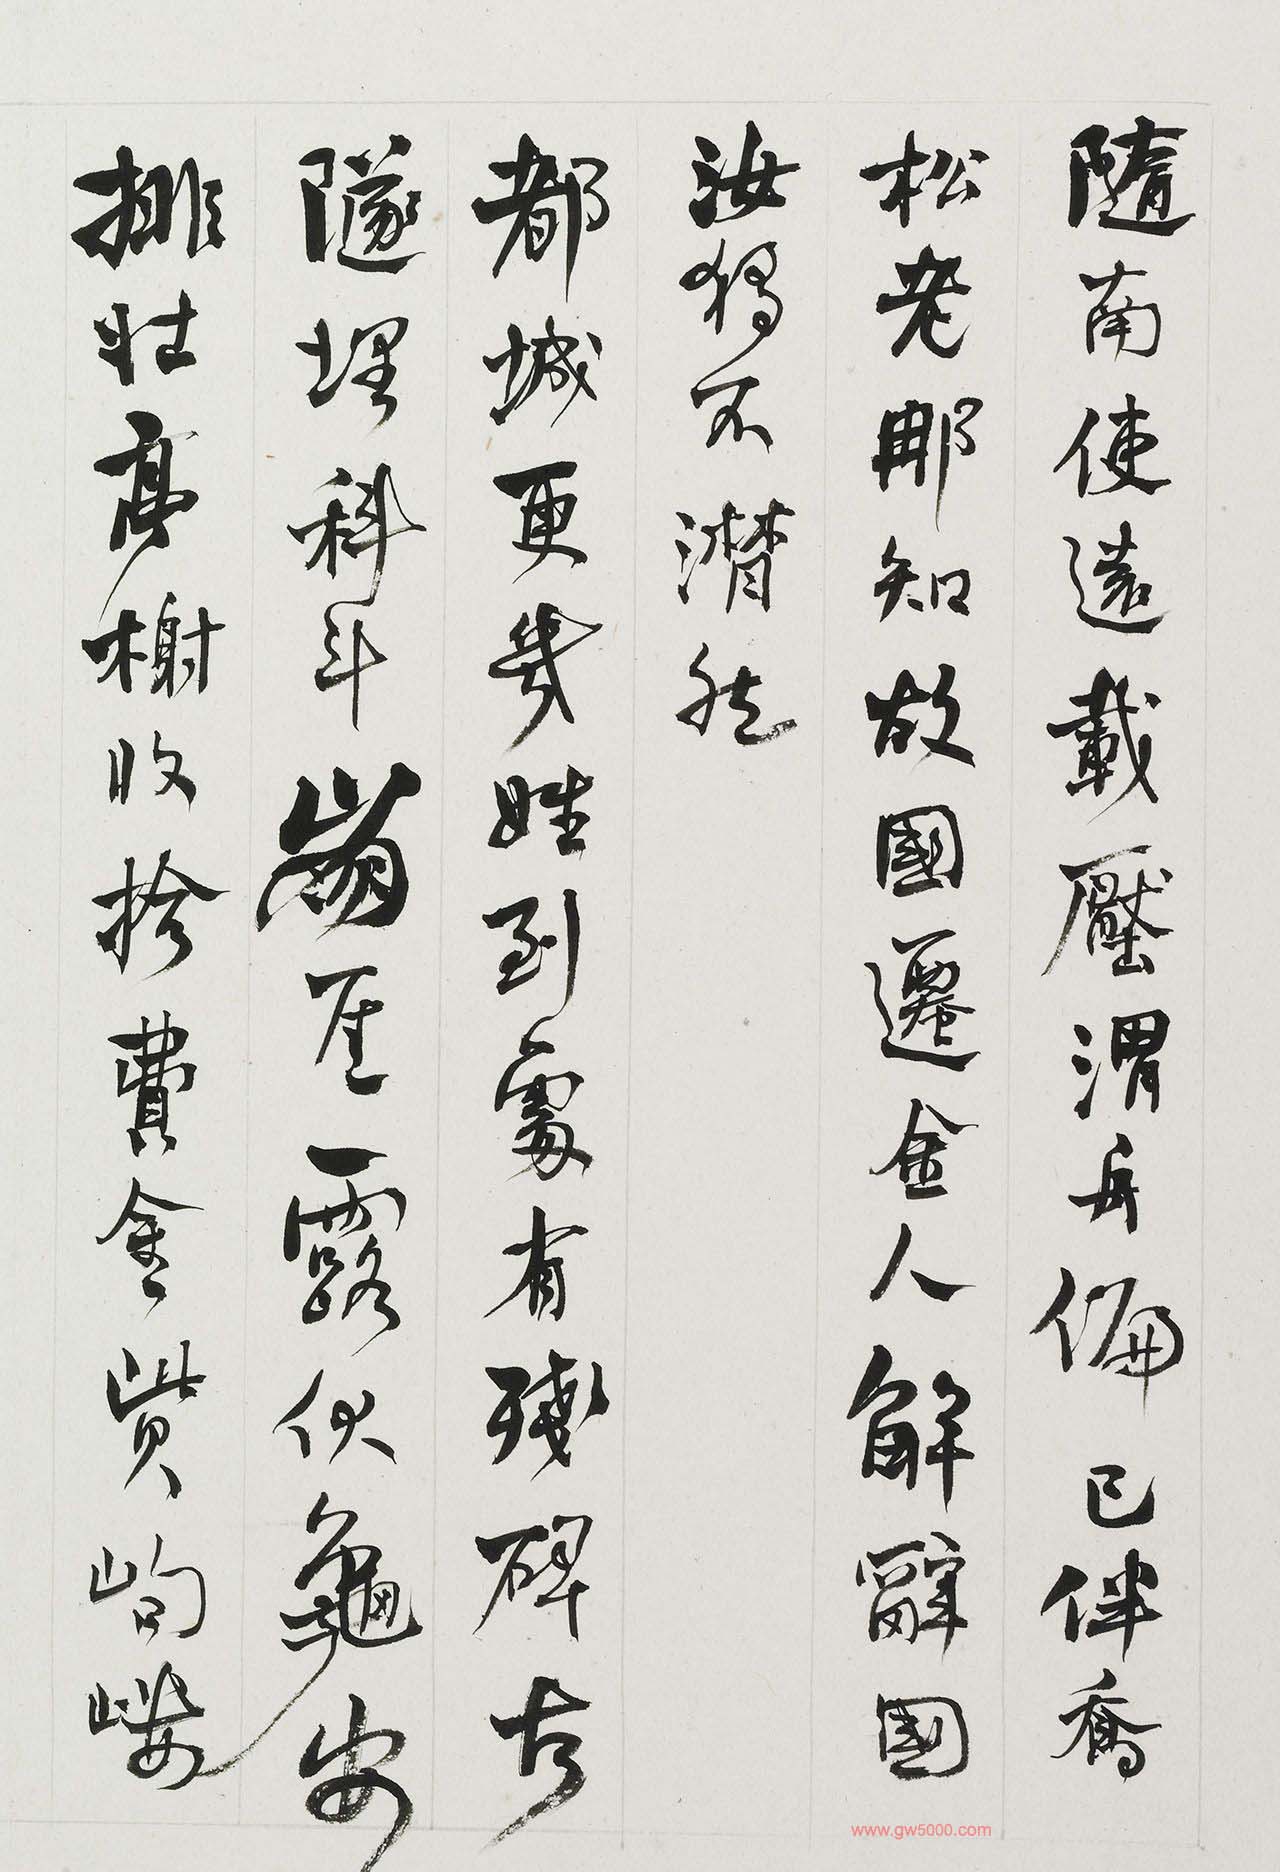 隨南使遠載壓渭舟偏已伴喬
松老那知故國遷金人解辭國
汝獨不潸然
都城更幾姓到處有殘碑古
隧埋科斗崩崖露伏龜安
排壯亭榭收拾費金貲岣嶁
www.gw5000.com